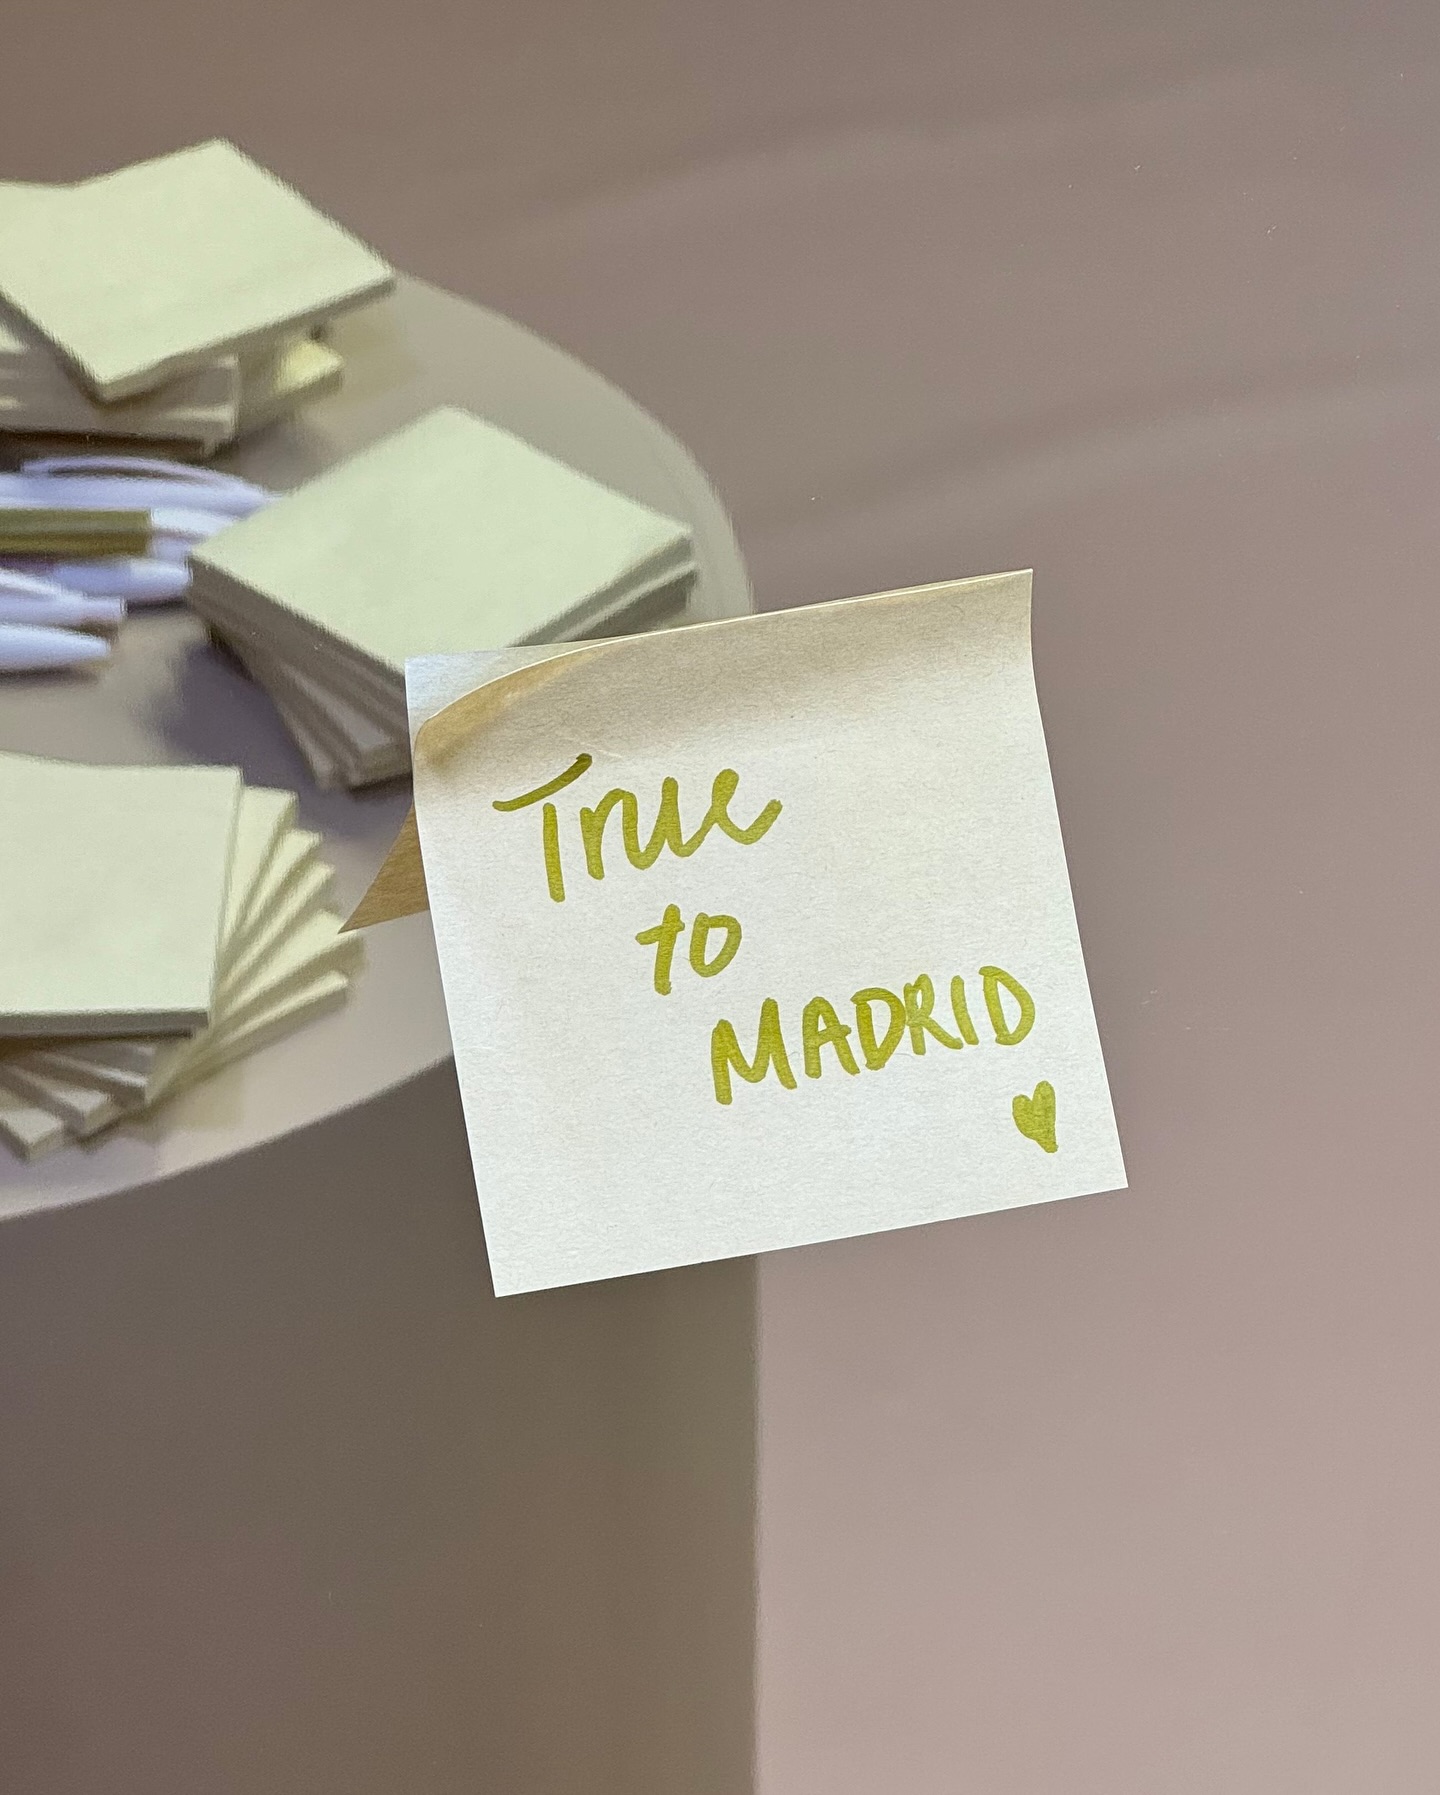 True
to
MADRID